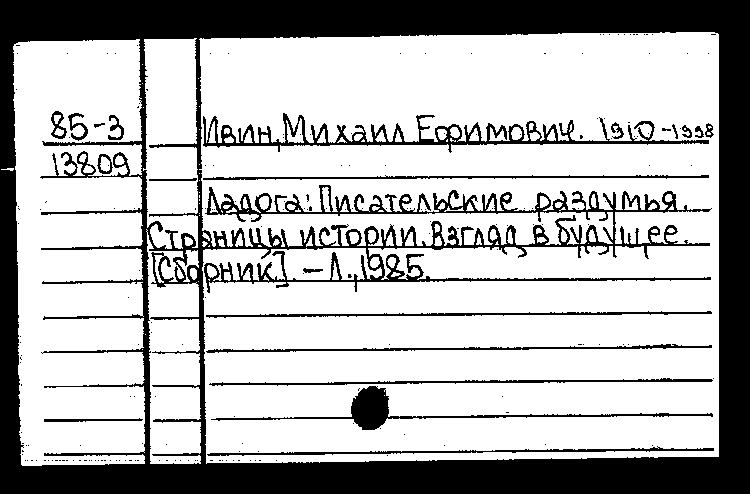 85-3 Ивин, Михаил Ефимович. 1910-1998
13809
Ладога: Писательские раздумья.
Страницы истории. Взгляд в будущее.
[Сборник]. – Л., 1985.